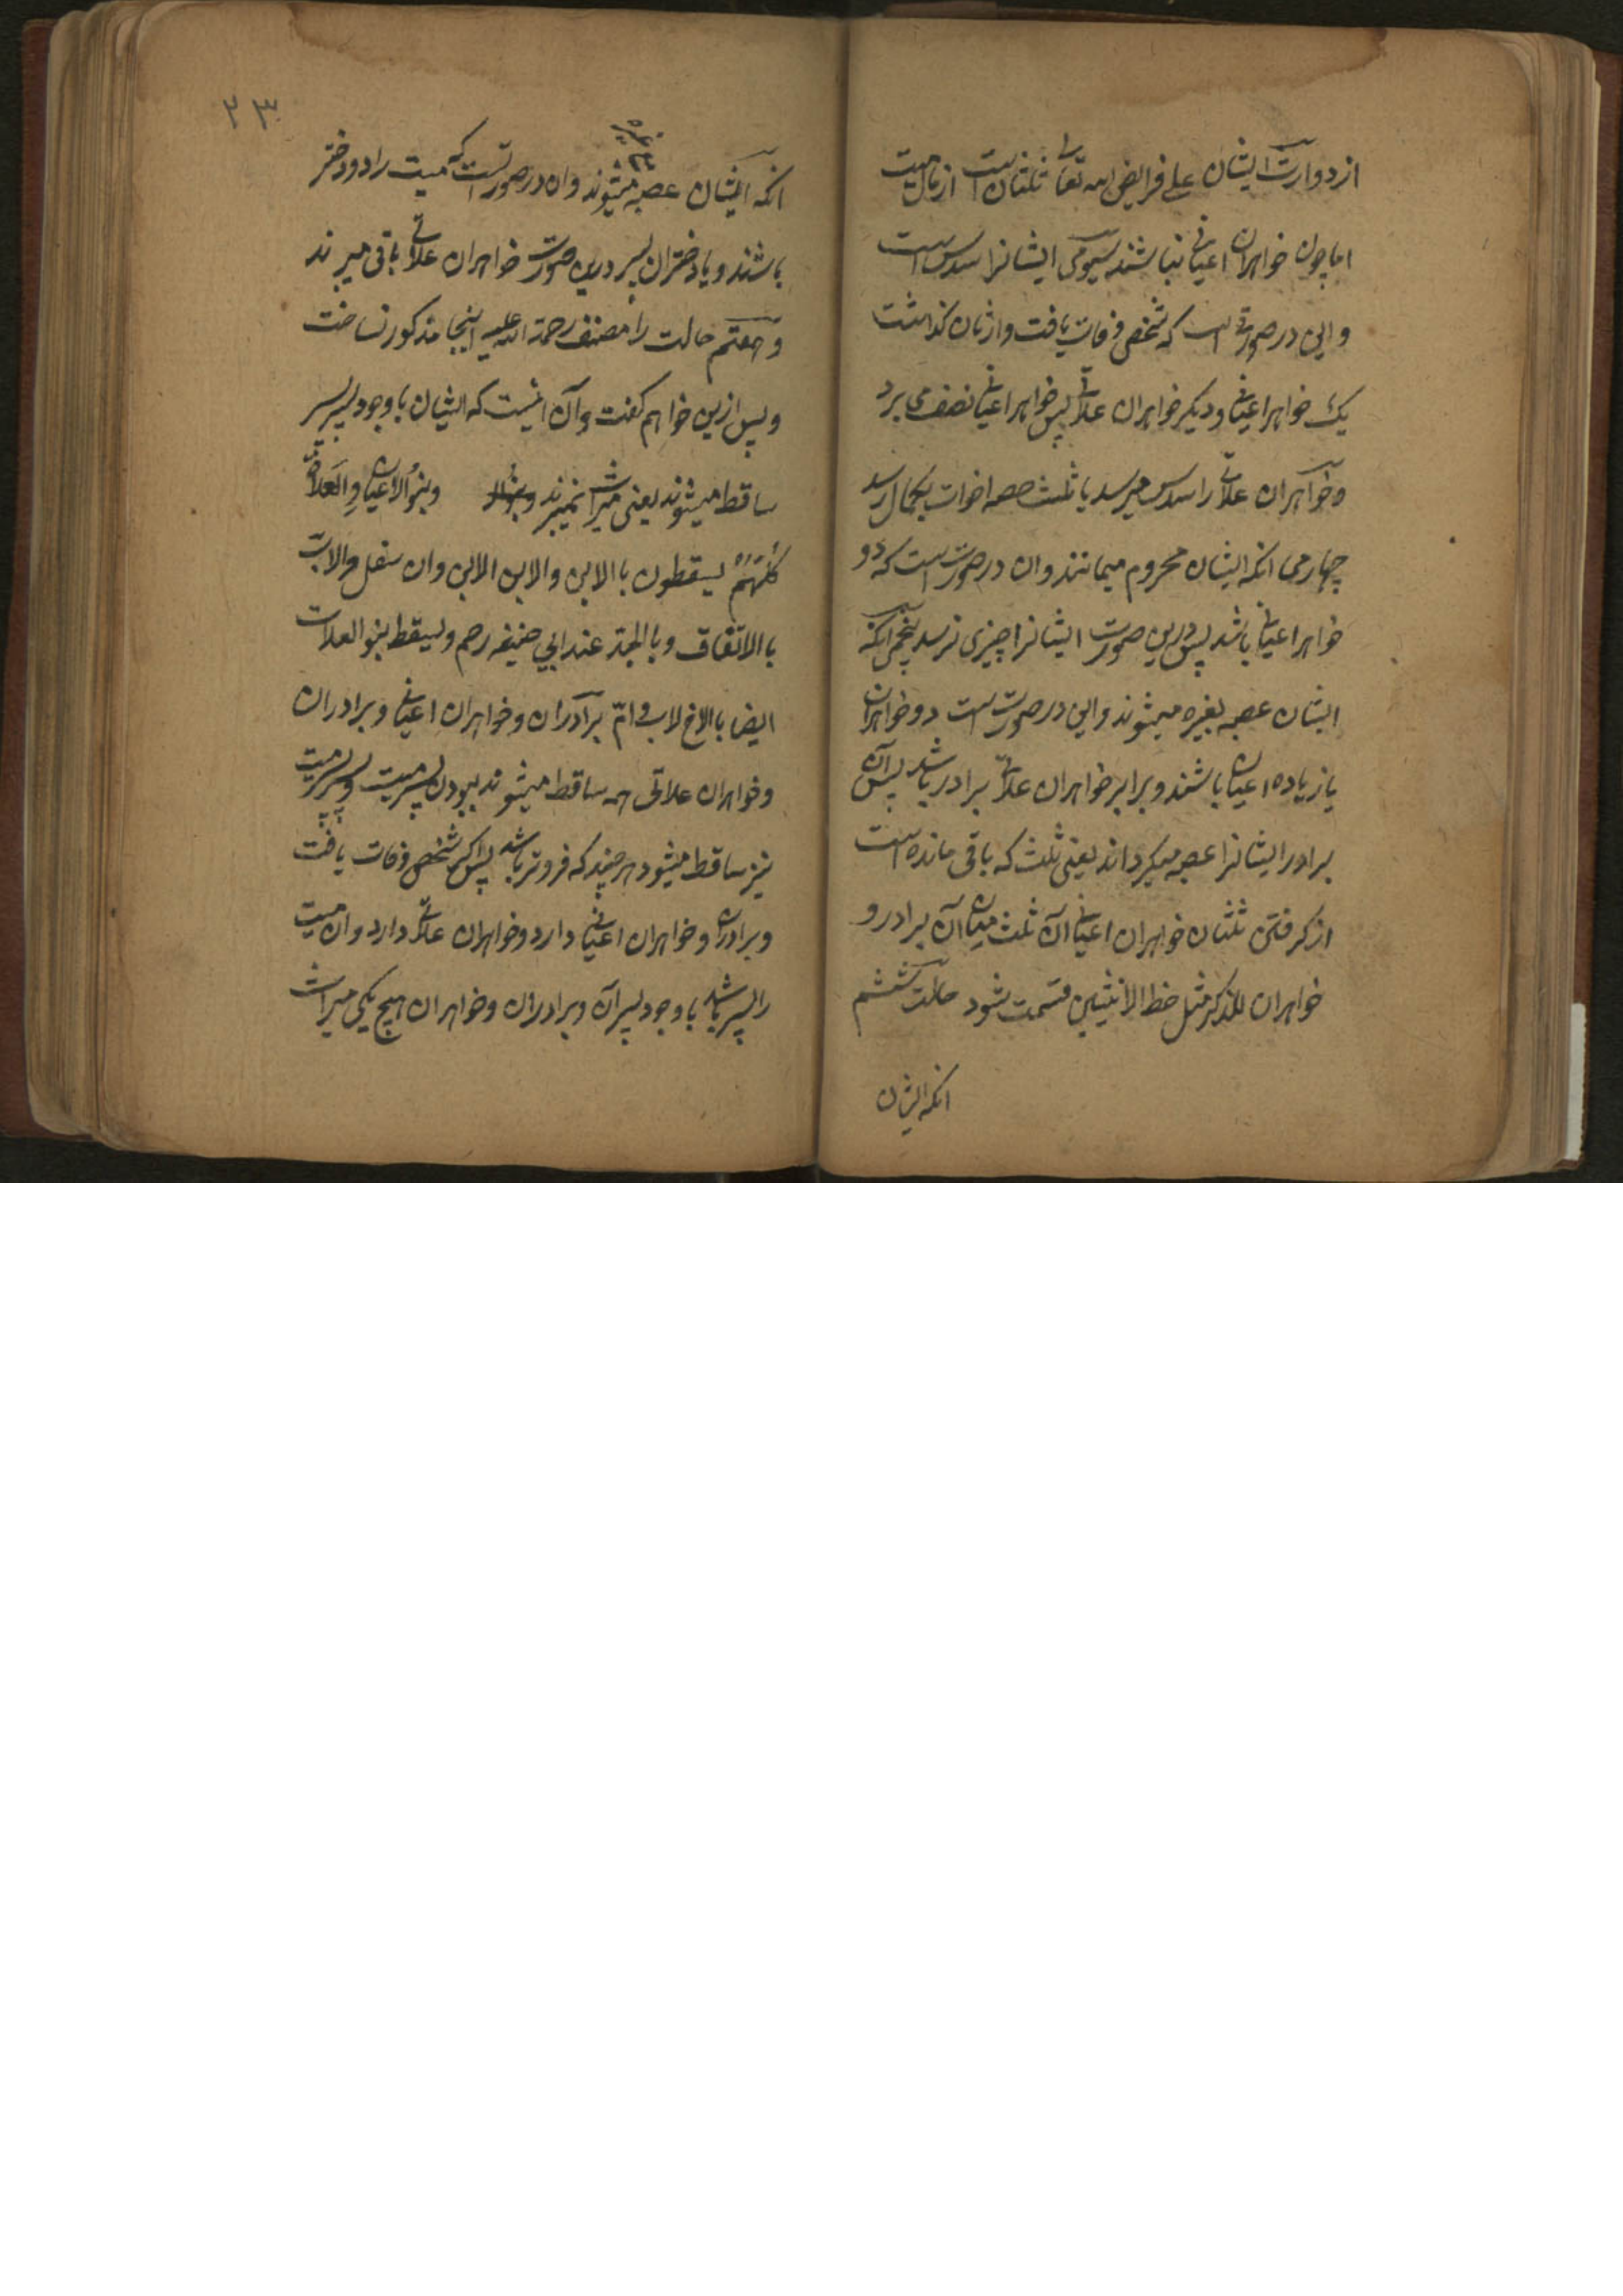 از دو وارث ایشان علی فرایض الله تعالی ثلثان است از مال میت
اما چون خواهران اعیانی نباشند سیومی ایشانرا سدس است
و این در صورتی است که شخصی وفات یافت و از زنان گذاشت
یک خواهر اعیانی و دیگر خواهران علاتی پس خواهر اعیانی نصف می برد
و خواهران علاتی را سدس میرسد یا ثلث حصه اخوات بکمال رسد
چهارمی انکه ایشان محروم میمانند و ان در صورتست که دو
خواهر اعیانی باشد پس درین صورت ایشانرا چیزی نرسد پنجمی انکه
ایشان عصبه بغیره میشوند و این در صورت است دو خواهران
یا زیاده اعیانی باشند و برابر خواهران علاتی برادر باشد پس آن
برادر ایشانرا عصبه میگرداند یعنی ثلث که باقی مانده است
از گرفتن ثلثان خواهران اعیانی آن ثلث میان آن برادر و
خواهران للذکر مثل حظ الانثیین قسمت شود حالت ششم
انکه ایشان
۲۳
انکه ایشان عصبه میشوند و ان در صورتست که میت را دو دختر
باشند و یا دختران پسر درین صورت خواهران علاتی باقی میبرند
و هفتم حالت را مصنف رحمة الله علیه اینجا مذکور نساخت
و پس ازین خواهم گفت و آن اینست که ایشان با وجود پسر
ساقط میشوند یعنی میراث نمیبرند وبنو الاعیان والعلات
کلهم یسقطون بالابن والابن الابن وان سفل والاب
بالاتفاق وبالجد عند ابی حنیفه رحم ویسقط بنو العلات
ایضا بالاخ لاب وام برادران و خواهران اعیانی و برادران
و خواهران علاتی همه ساقط میشوند ببودن پسر میت و پسر پسر میت
نیز ساقط میشود هر چند که فروتر باشد پس اگر شخصی وفات یافت
و برادران و خواهران اعیانی دارد و خواهران علاتی دارد و ان میت
را پسر باشد با وجود پسر آن و برادران و خواهران هیچ یکی میراث